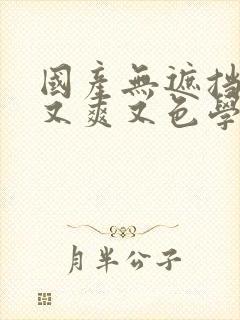 國產無遮擋
又爽又色學
月半公子